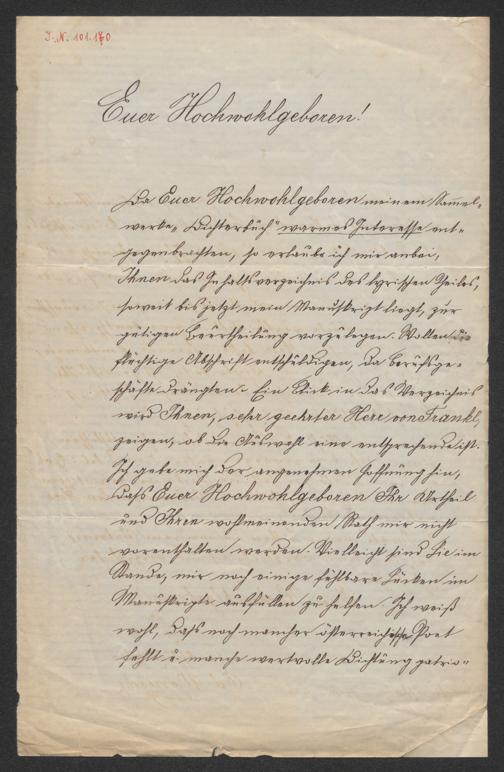 J. N. 101.170
Euer Hochwohlgeboren!
Da Euer Hochwohlgeboren meinem Samel-
werke „Dichterbuch" warmes Interesse ent-
gegenbrachten, so erlaube ich mir anbei,
Ihnen das Inhaltsverzeichnis des lyrischen Theiles,
soweit bis jetzt mein Manuskript liegt, zur
gütigen Beurtheilung vorzulegen. Wollen Sie
flüchtige Abschrift entschuldigen, da Berufsge-
schäfte drängten. Ein Blick in das Verzeichnis
wird Ihnen, sehr geehrter Herr von Frankl,
zeigen, ob die Auswahl eine entsprechende ist.
Ich gebe mich der angenehmen Hoffnung hin,
dass Euer Hochwohlgeboren Ihr Urtheil
und Ihren wohlmeinenden Rath mir nicht
vorenthalten werden. Vielleicht sind Sie im
Stande, mir noch einige fühlbare Lücken im
Manuskripte ausfüllen zu helfen. Ich weiß
wohl, dass noch mancher österreichische Poet
fehlt u. manche wertvolle Dichtung patrio-